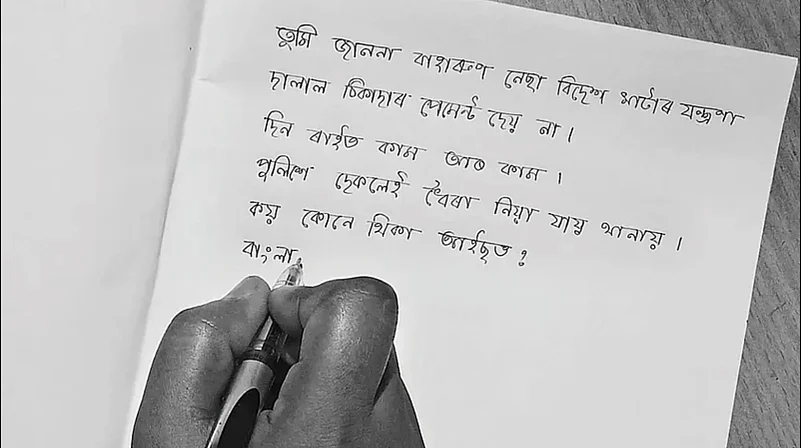 তুমি জাননা বাহাৰুণ নেছা বিদেশ মাটোৰ যন্ত্ৰণা
দালাল ঠিকাদাৰ পেমেন্ট দেয় না।
দিন ৰাইত কাম আৰ কাম।
পুলিশে দেকলেই ধৈৰা নিয়া যায় থানায়।
কয় কোনে থিকা আইছত?
বাংলা